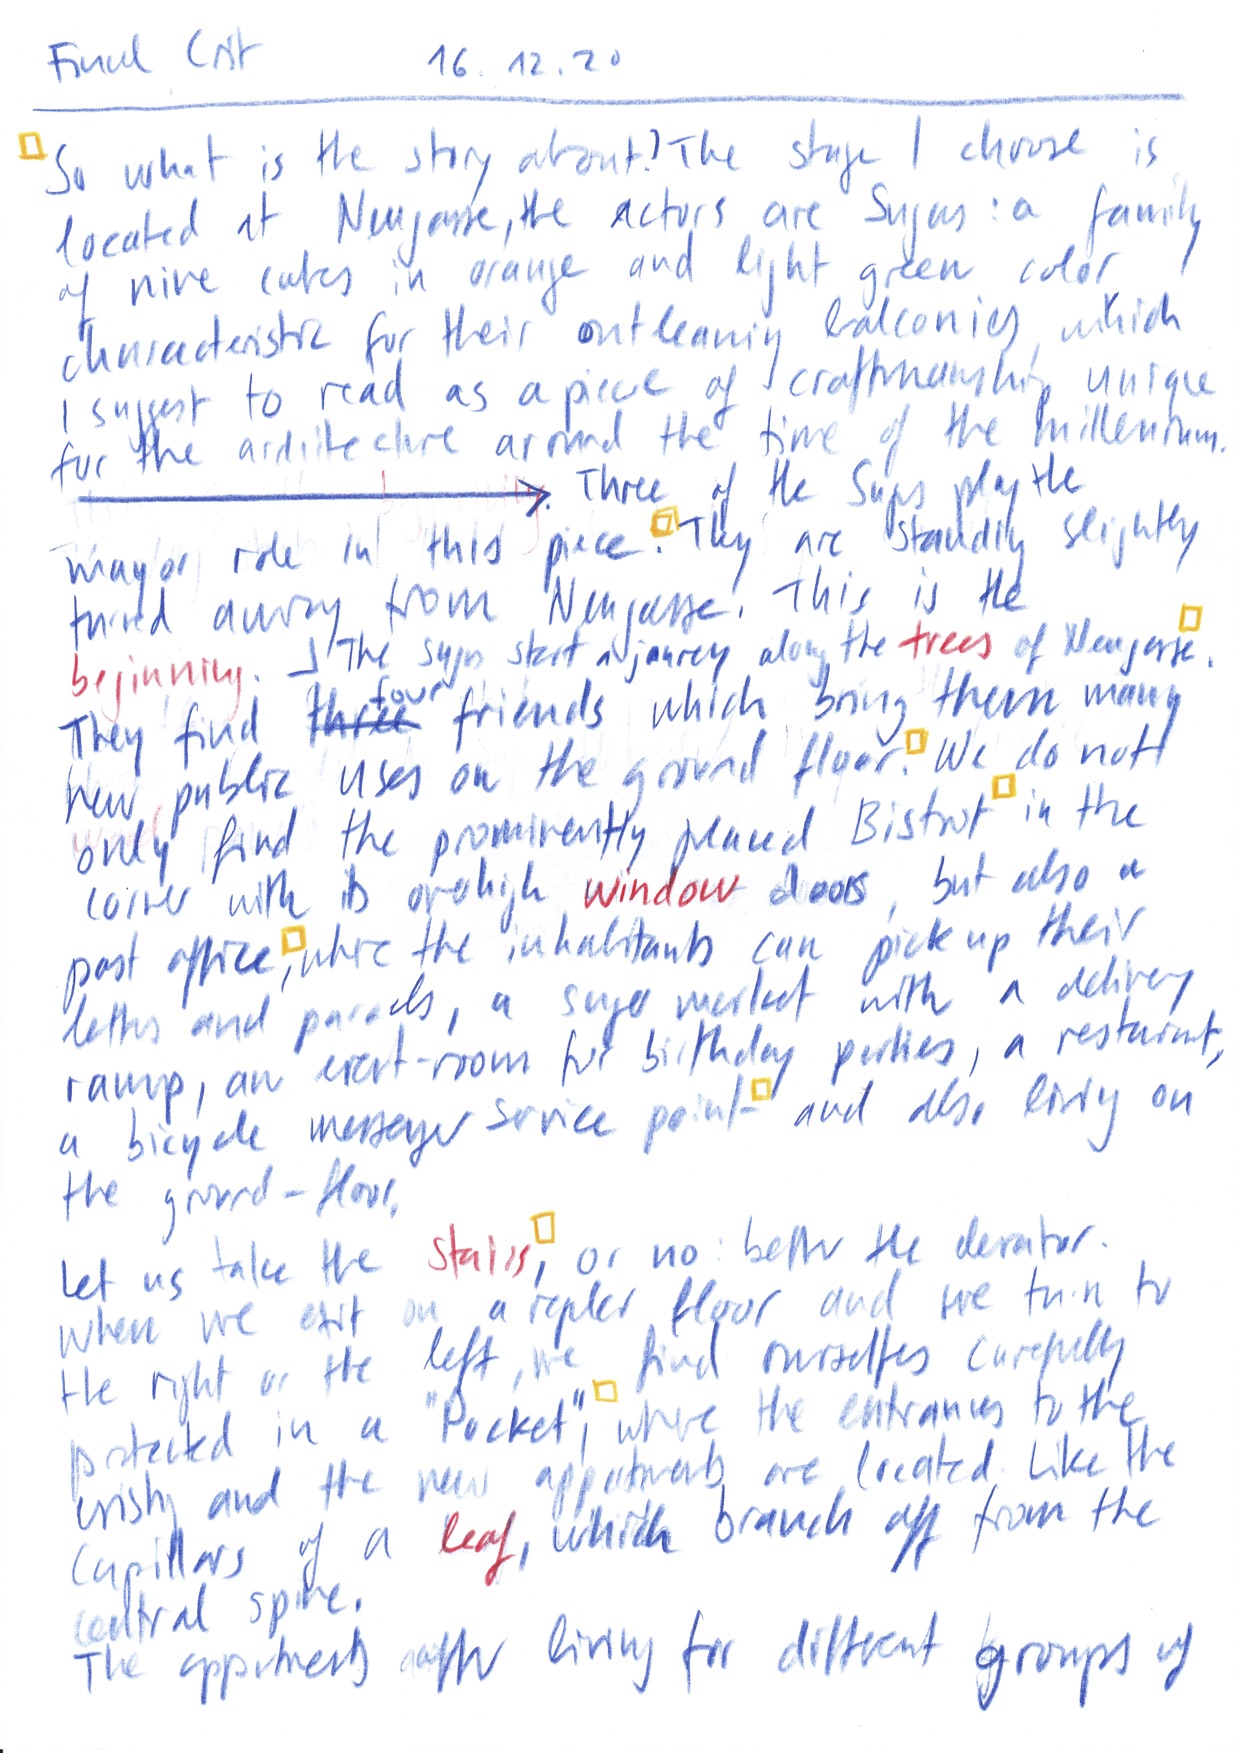 Final Crit 16.12.20
So what is the story about? The stage I choose is
located at Neugasse, the actors are Sugus: a family
of nine cubes in orange and light green color
characteristic for their outleaning balconies, which
I suggest to read as a piece of craftmanship unique
for the architecture around the time of the millenium.
Three of the Sugus play the
mayor role in this piece. They are standing slightly
turned away from Neugasse. This is the
beginning. The sugus start a journey along the trees of Neugasse.
They find three four friends which bring them many
new public uses on the ground floor. We do not
only find the prominently placed Bistrot in the
corner with its overhigh window doors, but also a
post office, where the inhabitants can pick up their
letters and parcels, a super market with a delivery
ramp, an event-room for birthday parties, a restaurant,
a bicycle messenger service point and also living on
the ground-floor.
Let us take the stairs, or no: better the elevator.
When we exit on a regular floor and we turn to
the right or the left, we find ourselfes carefully
protected in a "Pocket", where the entrances to the
existing and the new appartments are located. Like the
Capillars of a leaf, which branch off from the
central spine.
The appartments offer living for different groups of